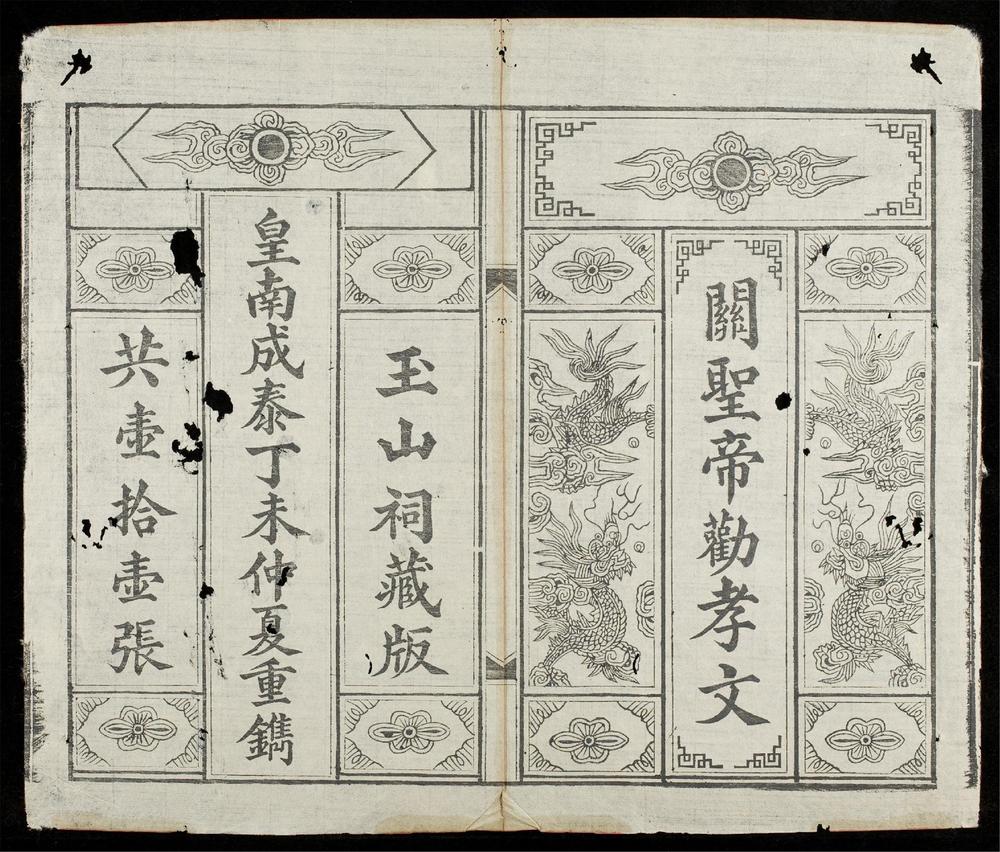 關聖帝勸孝文
玉山祠藏版
皇南成泰丁未仲夏重鐫
共壺拾壺張